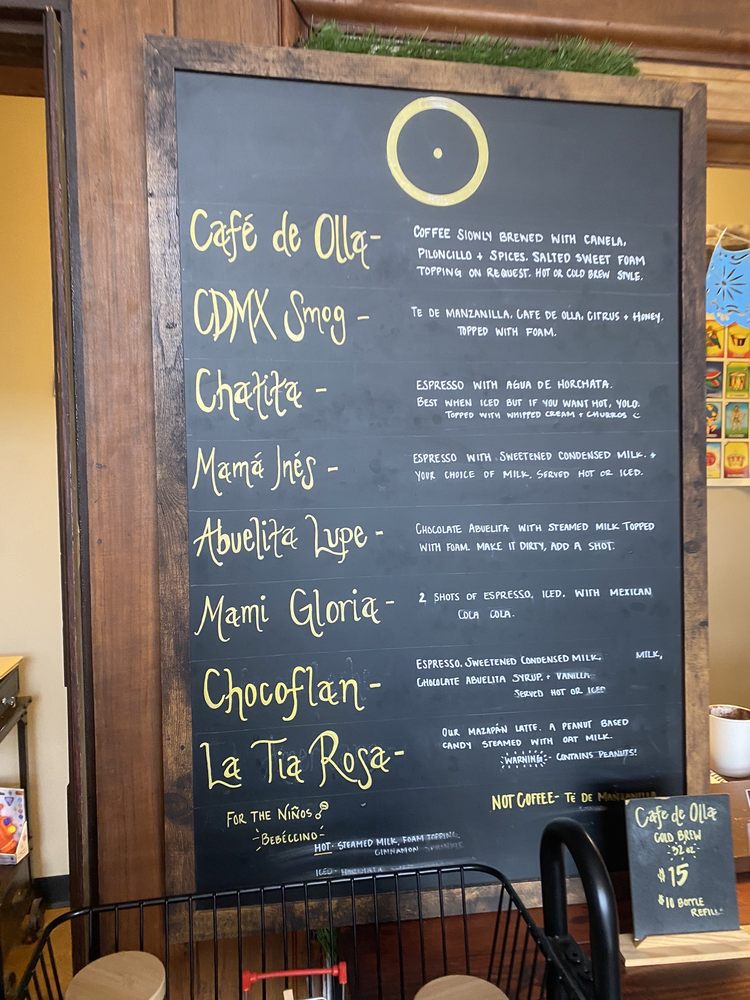 Café de Olla-
COFFEE SLOWLY BREWED WITH CANELA,
PILONCILLO + SPICES. SALTED SWEET FOAM
TOPPING ON REQUEST. HOT OR COLD BREW STYLE.
CDMX Smog -
TE DE MANZANILLA, CAFE DE OLLA, CITRUS + HONEY,
TOPPED WITH FOAM.
Chatita -
ESPRESSO WITH AGUA DE HORCHATA.
BEST WHEN ICED BUT IF YOU WANT HOT, YOLO.
TOPPED WITH WHIPPED CREAM + CHURROS
Mamá Inés -
ESPRESSO WITH SWEETENED CONDENSED MILK. +
YOUR CHOICE OF MILK, SERVED HOT OR ICED.
Abuelita Lupe -
CHOCOLATE ABUELITA WITH STEAMED MILK TOPPED
WITH FOAM. MAKE IT DIRTY, ADD A SHOT.
Mami Gloria -
2 SHOTS OF ESPRESSO, ICED, WITH MEXICAN
COLA COLA.
Chocoflan -
ESPRESSO, SWEETENED CONDENSED MILK, MILK,
CHOCOLATE ABUELITA SYRUP, + VANILLA
SERVED HOT OR ICED
La Tia Rosa-
OUR MAZAPÁN LATTE. A PEANUT BASED
CANDY STEAMED WITH OAT MILK.
WARNING: CONTAINS PEANUTS!
FOR THE NIÑOS
BEBÉCCINO
HOT- STEAMED MILK, FOAM TOPPING,
CINNAMON SPRINKLE
ICED- HORCHATA
NOT COFFEE- TE DE MANZANILLA
Cafe de Olla
COLD BREW
32 oz
$15
$10 BOTTLE
REFILL